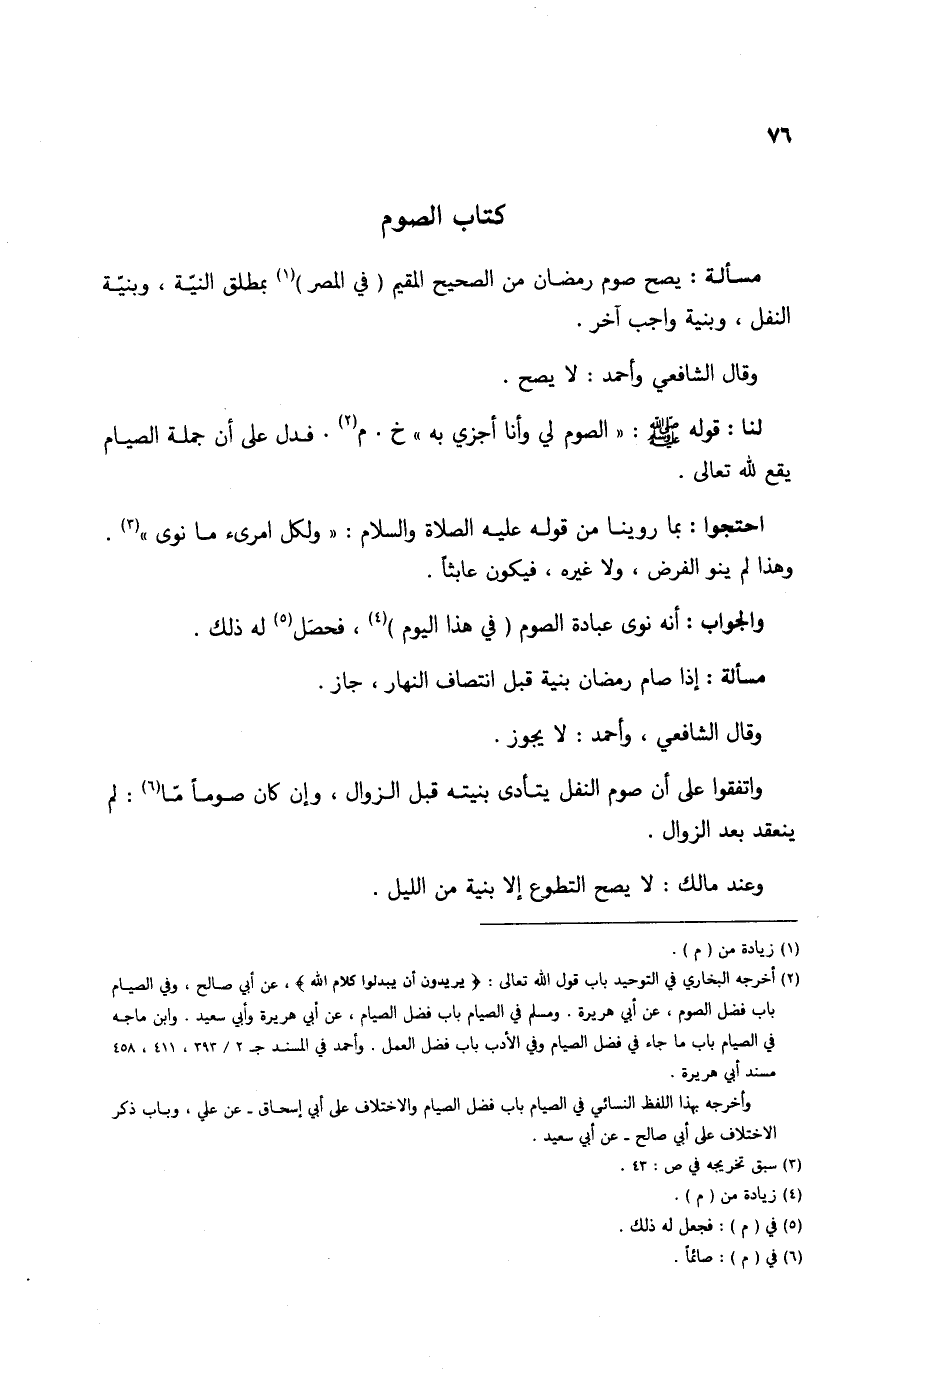 ٧٦
كتاب الصوم
مسألة : يصح صوم رمضان من الصحيح المقيم ( في المصر )(١) بمطلق النيّة ، وبنيّة
النفل ، وبنية واجب آخر .
وقال الشافعي وأحمد : لا يصح .
لنا : قوله ﷺ : « الصوم لي وأنا أجزي به » خ . م(٢) . فدل على أن جملة الصيام
يقع لله تعالى .
احتجوا : بما روينا من قوله عليه الصلاة والسلام : « ولكل امرىء ما نوى »(٣) .
وهذا لم ينو الفرض ، ولا غيره ، فيكون عابثاً .
والجواب : أنه نوى عبادة الصوم ( في هذا اليوم )(٤) ، فحصَل(٥) له ذلك .
مسألة : إذا صام رمضان بنية قبل انتصاف النهار ، جاز .
وقال الشافعي ، وأحمد : لا يجوز .
واتفقوا على أن صوم النفل يتأدى بنيته قبل الزوال ، وإن كان صوماً مّا(٦) : لم
ينعقد بعد الزوال .
وعند مالك : لا يصح التطوع إلا بنية من الليل .
(١) زيادة من ( م ) .
(٢) أخرجه البخاري في التوحيد باب قول الله تعالى : ﴿ يريدون أن يبدلوا كلام الله ﴾ ، عن أبي صالح ، وفي الصيام
باب فضل الصوم ، عن أبي هريرة . ومسلم في الصيام باب فضل الصيام ، عن أبي هريرة وأبي سعيد . وابن ماجه
في الصيام باب ما جاء في فضل الصيام وفي الأدب باب فضل العمل . وأحمد في المسند جـ ٢ / ٣٩٣ ، ٤١١ ، ٤٥٨
مسند أبي هريرة .
وأخرجه بهذا اللفظ النسائي في الصيام باب فضل الصيام والاختلاف على أبي إسحاق ـ عن علي ، وباب ذكر
الاختلاف على أبي صالح ـ عن أبي سعيد .
(٣) سبق تخريجه في ص : ٤٣ .
(٤) زيادة من ( م ) .
(٥) في ( م ) : فجعل له ذلك .
(٦) في ( م ) : صائماً .